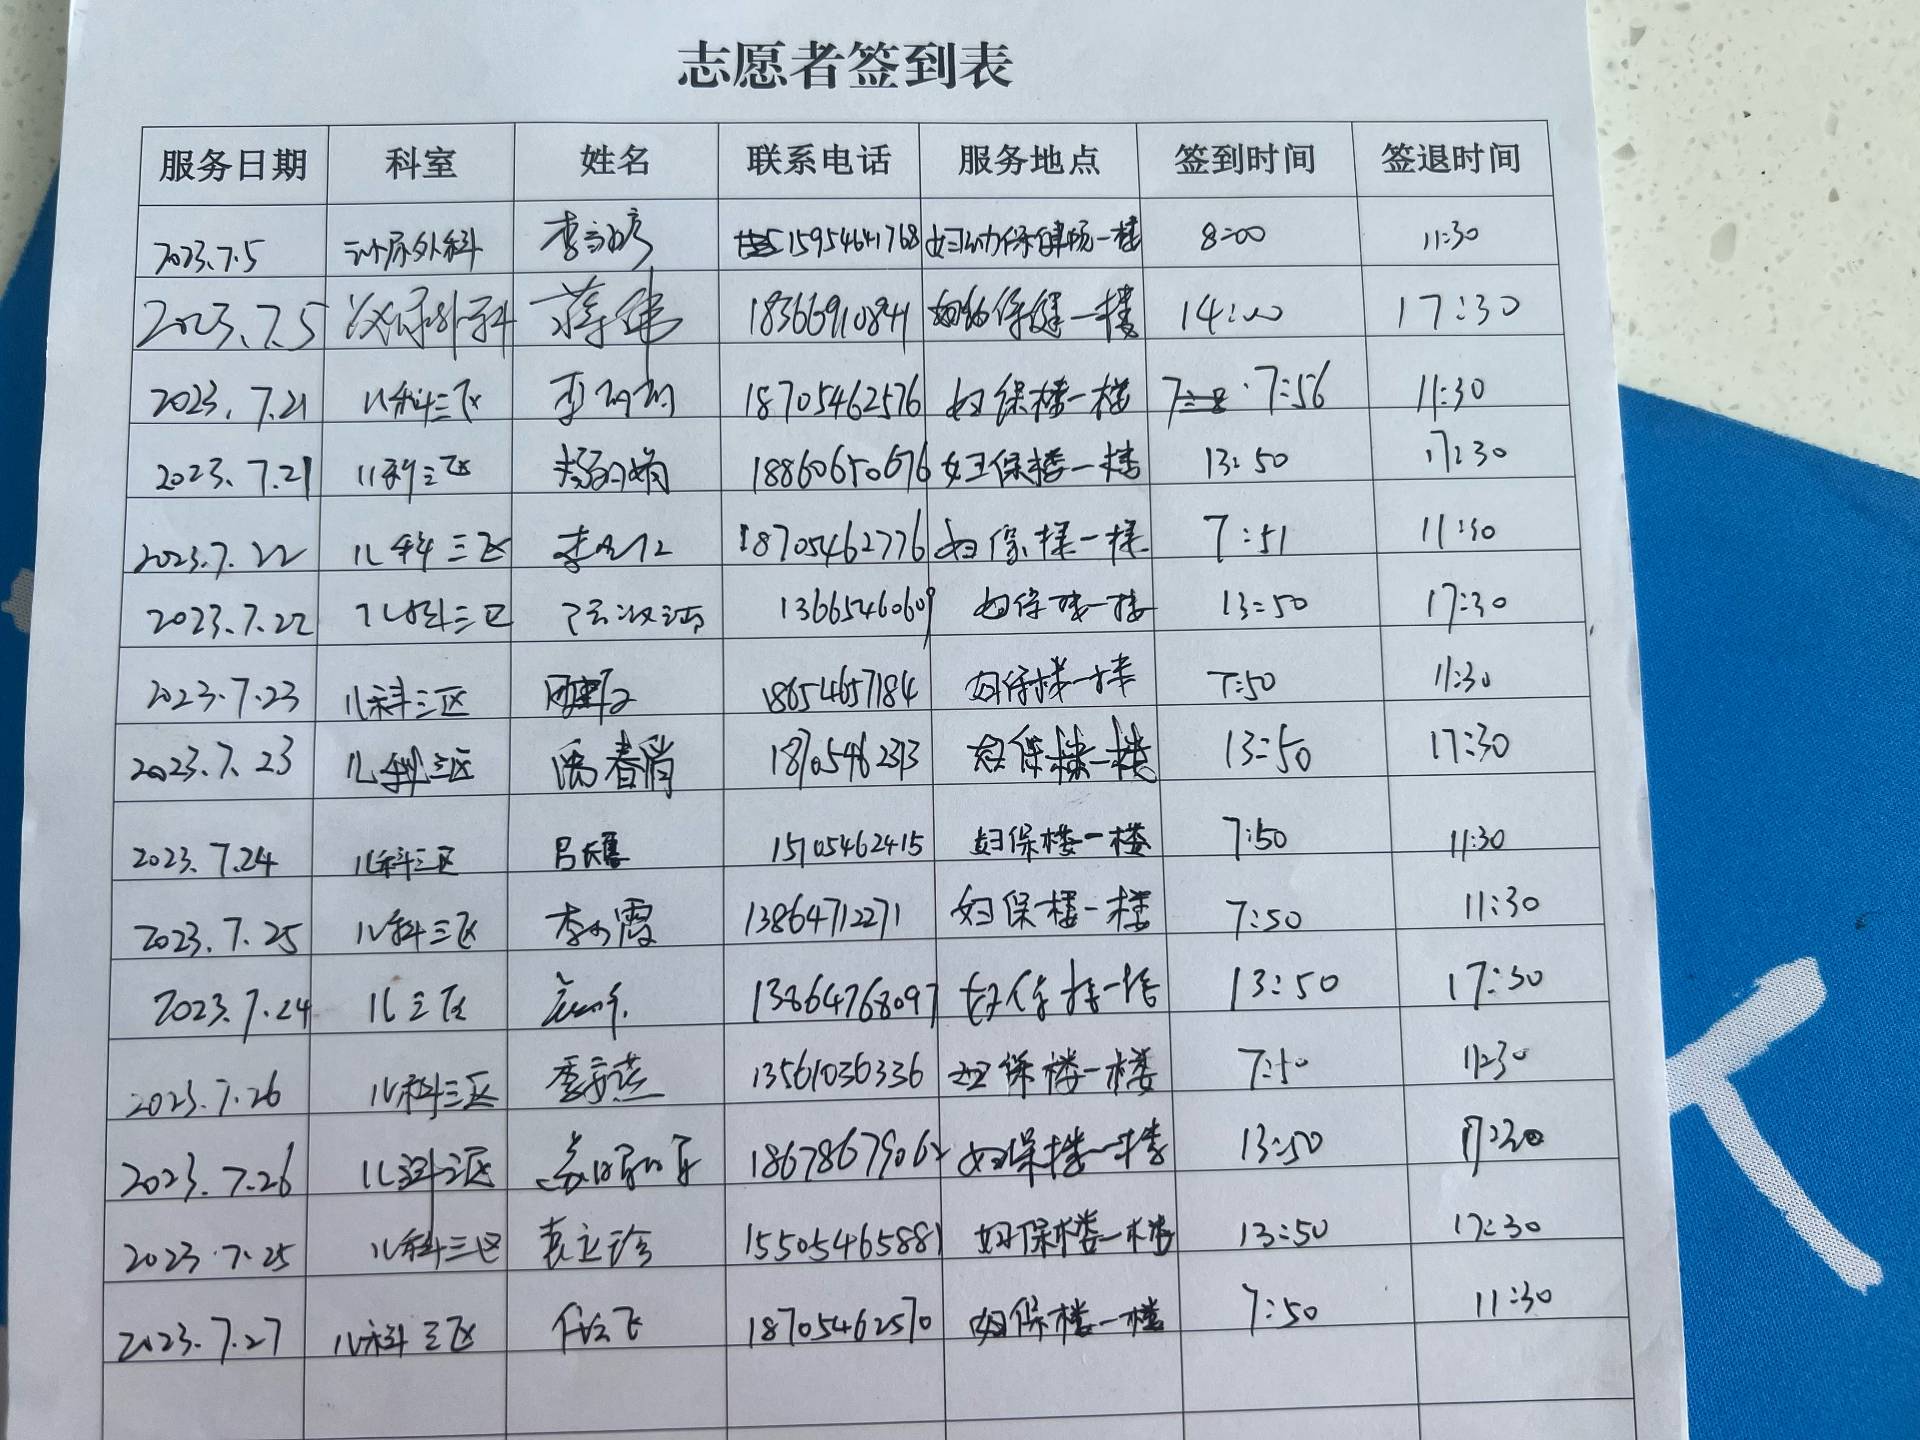 志愿者签到表
服务日期 科室 姓名 联系电话 服务地点 签到时间 签退时间
2023.7.5 泌尿外科 15954641768 妇幼保健院一楼 8:00 11:30
2023.7.5 泌尿外科 蒋伟 18366910841 妇幼保健一楼 14:00 17:30
2023.7.21 儿科三区 18705462576 妇保楼一楼 7:56 11:30
2023.7.21 儿科三区 18860650676 妇保楼一楼 13:50 17:30
2023.7.22 儿科三区 18705462776 妇保楼一楼 7:51 11:30
2023.7.22 儿科三区 13665460609 妇保楼一楼 13:50 17:30
2023.7.23 儿科三区 18654657184 妇保楼一楼 7:50 11:30
2023.7.23 儿科三区 18705462373 妇保楼一楼 13:50 17:30
2023.7.24 儿科三区 15705462415 妇保楼一楼 7:50 11:30
2023.7.25 儿科三区 李小霞 13864712271 妇保楼一楼 7:50 11:30
2023.7.24 儿三区 13864768097 妇保楼一楼 13:50 17:30
2023.7.26 儿科三区 13561036336 妇保楼一楼 7:50 11:30
2023.7.26 儿科三区 18678679062 妇保楼一楼 13:50 17:30
2023.7.25 儿科三区 袁立珍 15505465881 妇保楼一楼 13:50 17:30
2023.7.27 儿科三区 任云飞 18705462570 妇保楼一楼 7:50 11:30